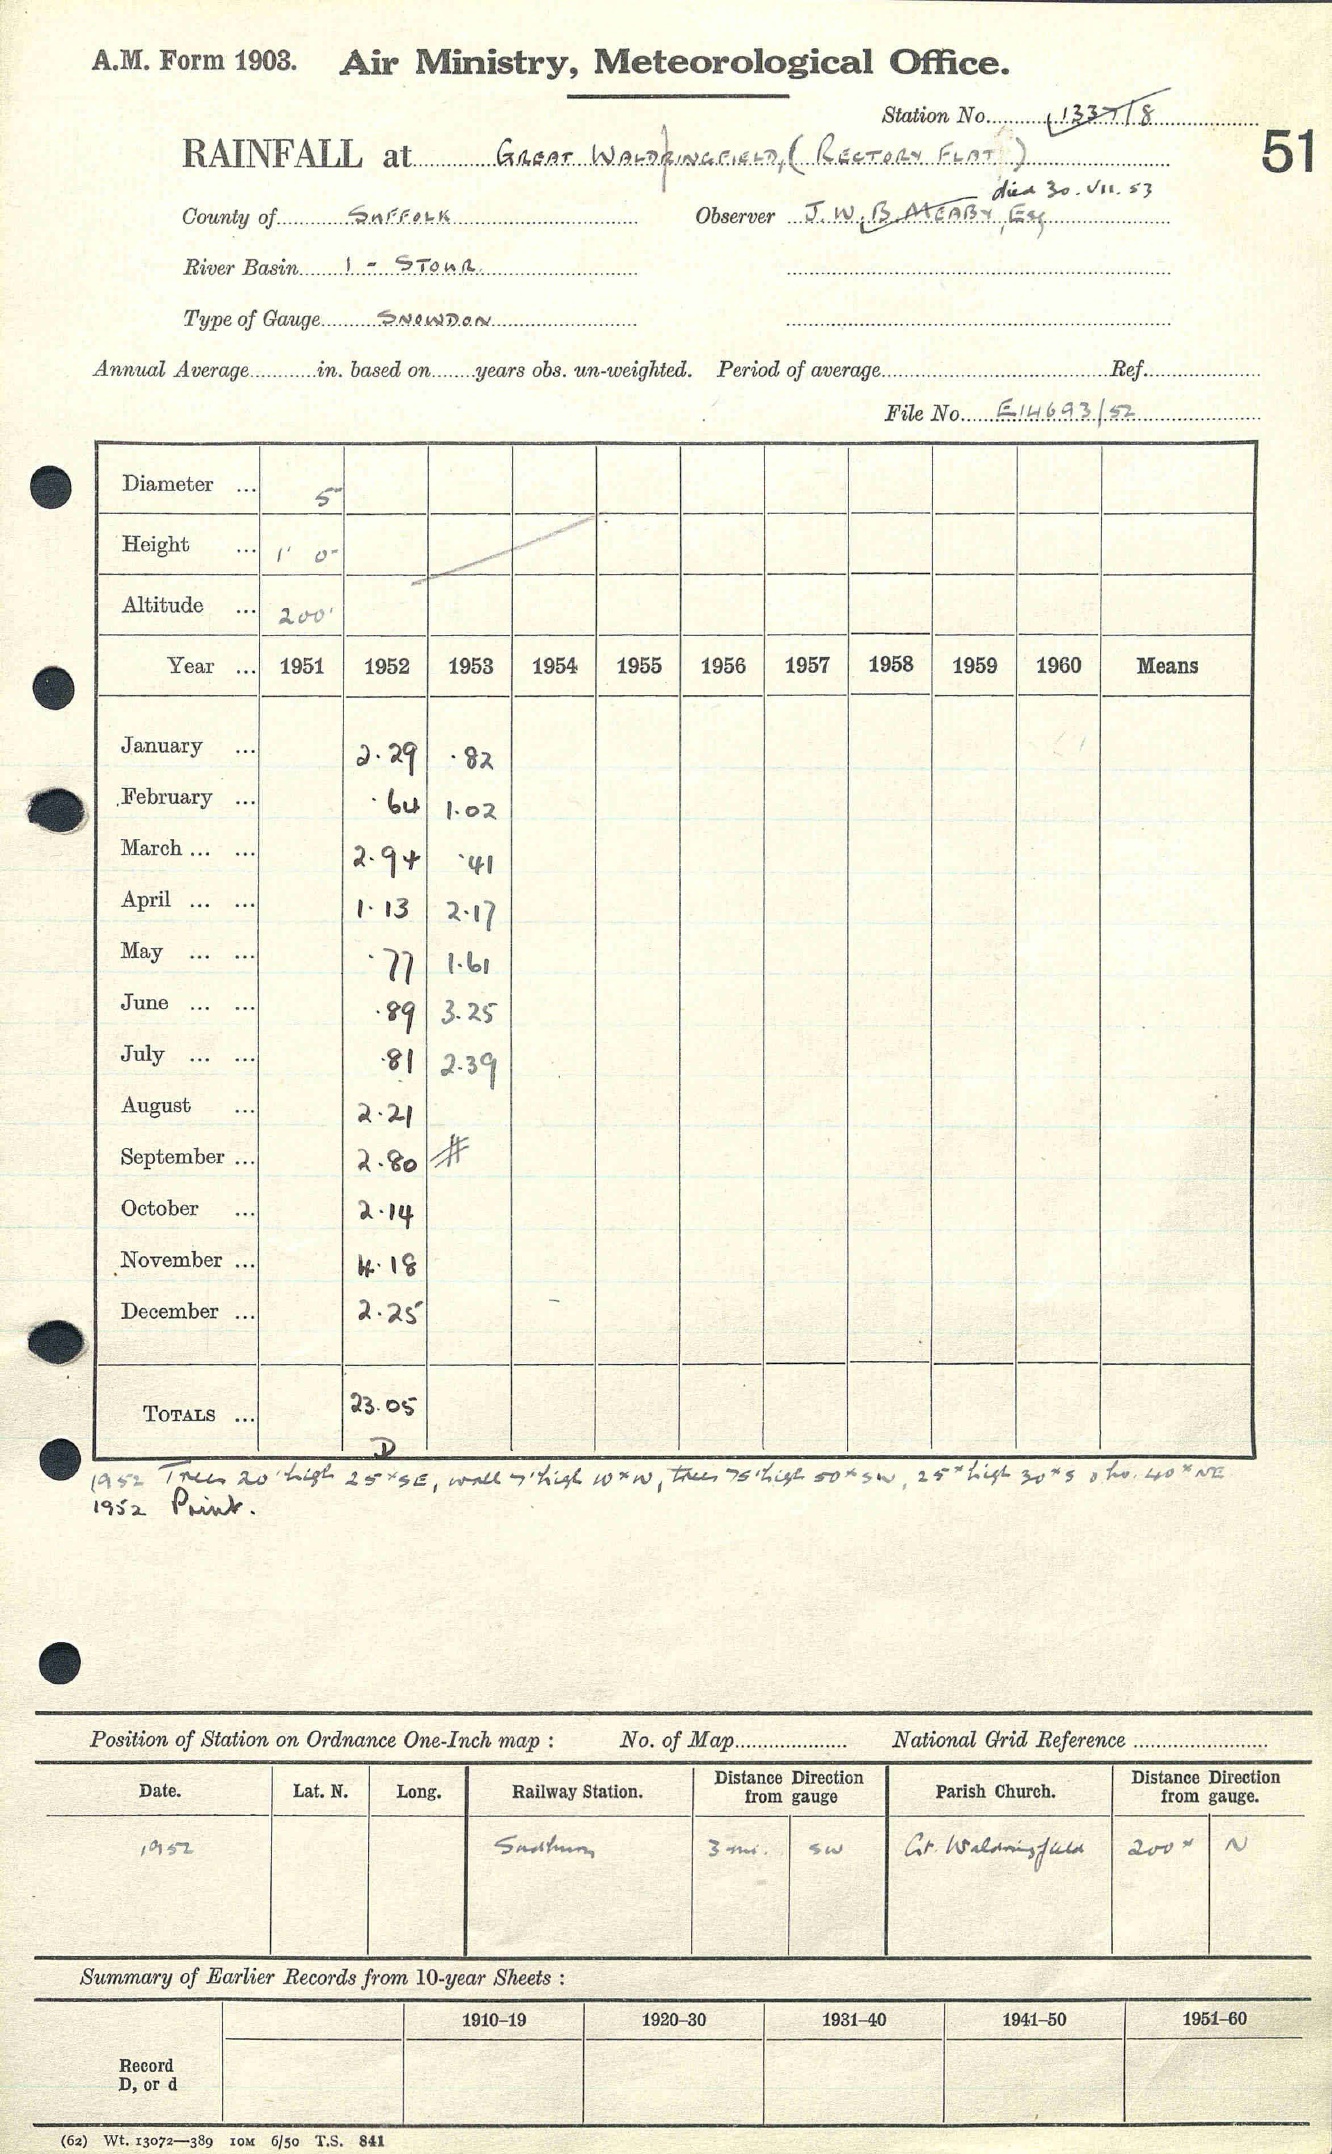 A.M. Form 1903. Air Ministry, Meteorological Office.
Station No. 1337/8
51
RAINFALL at GREAT WALDRINGFIELD, (RECTORY FLAT)
died 30.VII.53
County of SUFFOLK Observer J. W. B. MEABY, Esq
River Basin 1 - STOUR.
Type of Gauge SNOWDON
Annual Average in. based on years obs. un-weighted. Period of average Ref.
File No. E14693/52
Diameter ... 5"
Height ... 1' 0"
Altitude ... 200'
Year ... 1951 1952 1953 1954 1955 1956 1957 1958 1959 1960 Means
January ... 2.29 .82
February ... .64 1.02
March ... ... 2.94 .41
April ... ... 1.13 2.17
May ... ... .77 1.61
June ... ... .89 3.25
July ... ... .81 2.39
August ... 2.21
September ... 2.80 #
October ... 2.14
November ... 4.18
December ... 2.25
TOTALS ... 23.05
D
1952 Trees 20' high 25ˣ SE, wall 7' high 10ˣ W, trees 75' high 50ˣ SW, 25ˣ high 30ˣ S 40ˣ NE
1952 Print.
Position of Station on Ordnance One-Inch map : No. of Map National Grid Reference
Date. Lat. N. Long. Railway Station. Distance Direction from gauge Parish Church. Distance Direction from gauge.
1952 Sudbury 3 mi. SW Gt. Waldringfield 200ˣ N
Summary of Earlier Records from 10-year Sheets :
1910–19 1920–30 1931–40 1941–50 1951–60
Record
D, or d
(62) Wt. 13072—389 10M 6/50 T.S. 841